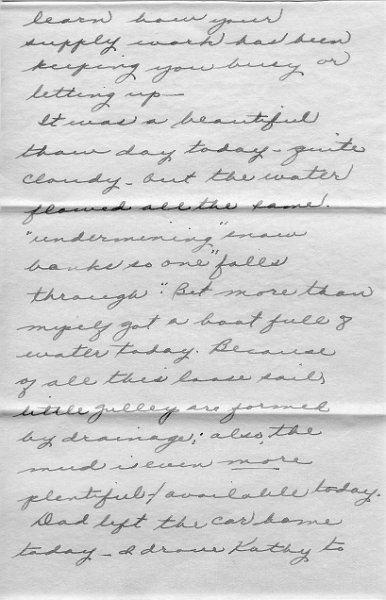 learn how your
supply work has been
keeping you busy or
letting up—
It was a beautiful
thaw day today - quite
cloudy - but the water
flowed all the same.
"undermining" snow
banks so one "falls
through". Bet more than
myself got a boot full of
water today. Because
of all this loose soil,
little gulley are formed
by drainage; also, the
mud is even more
plentiful/available today.
Dad left the car home
today - I drove Kathy to